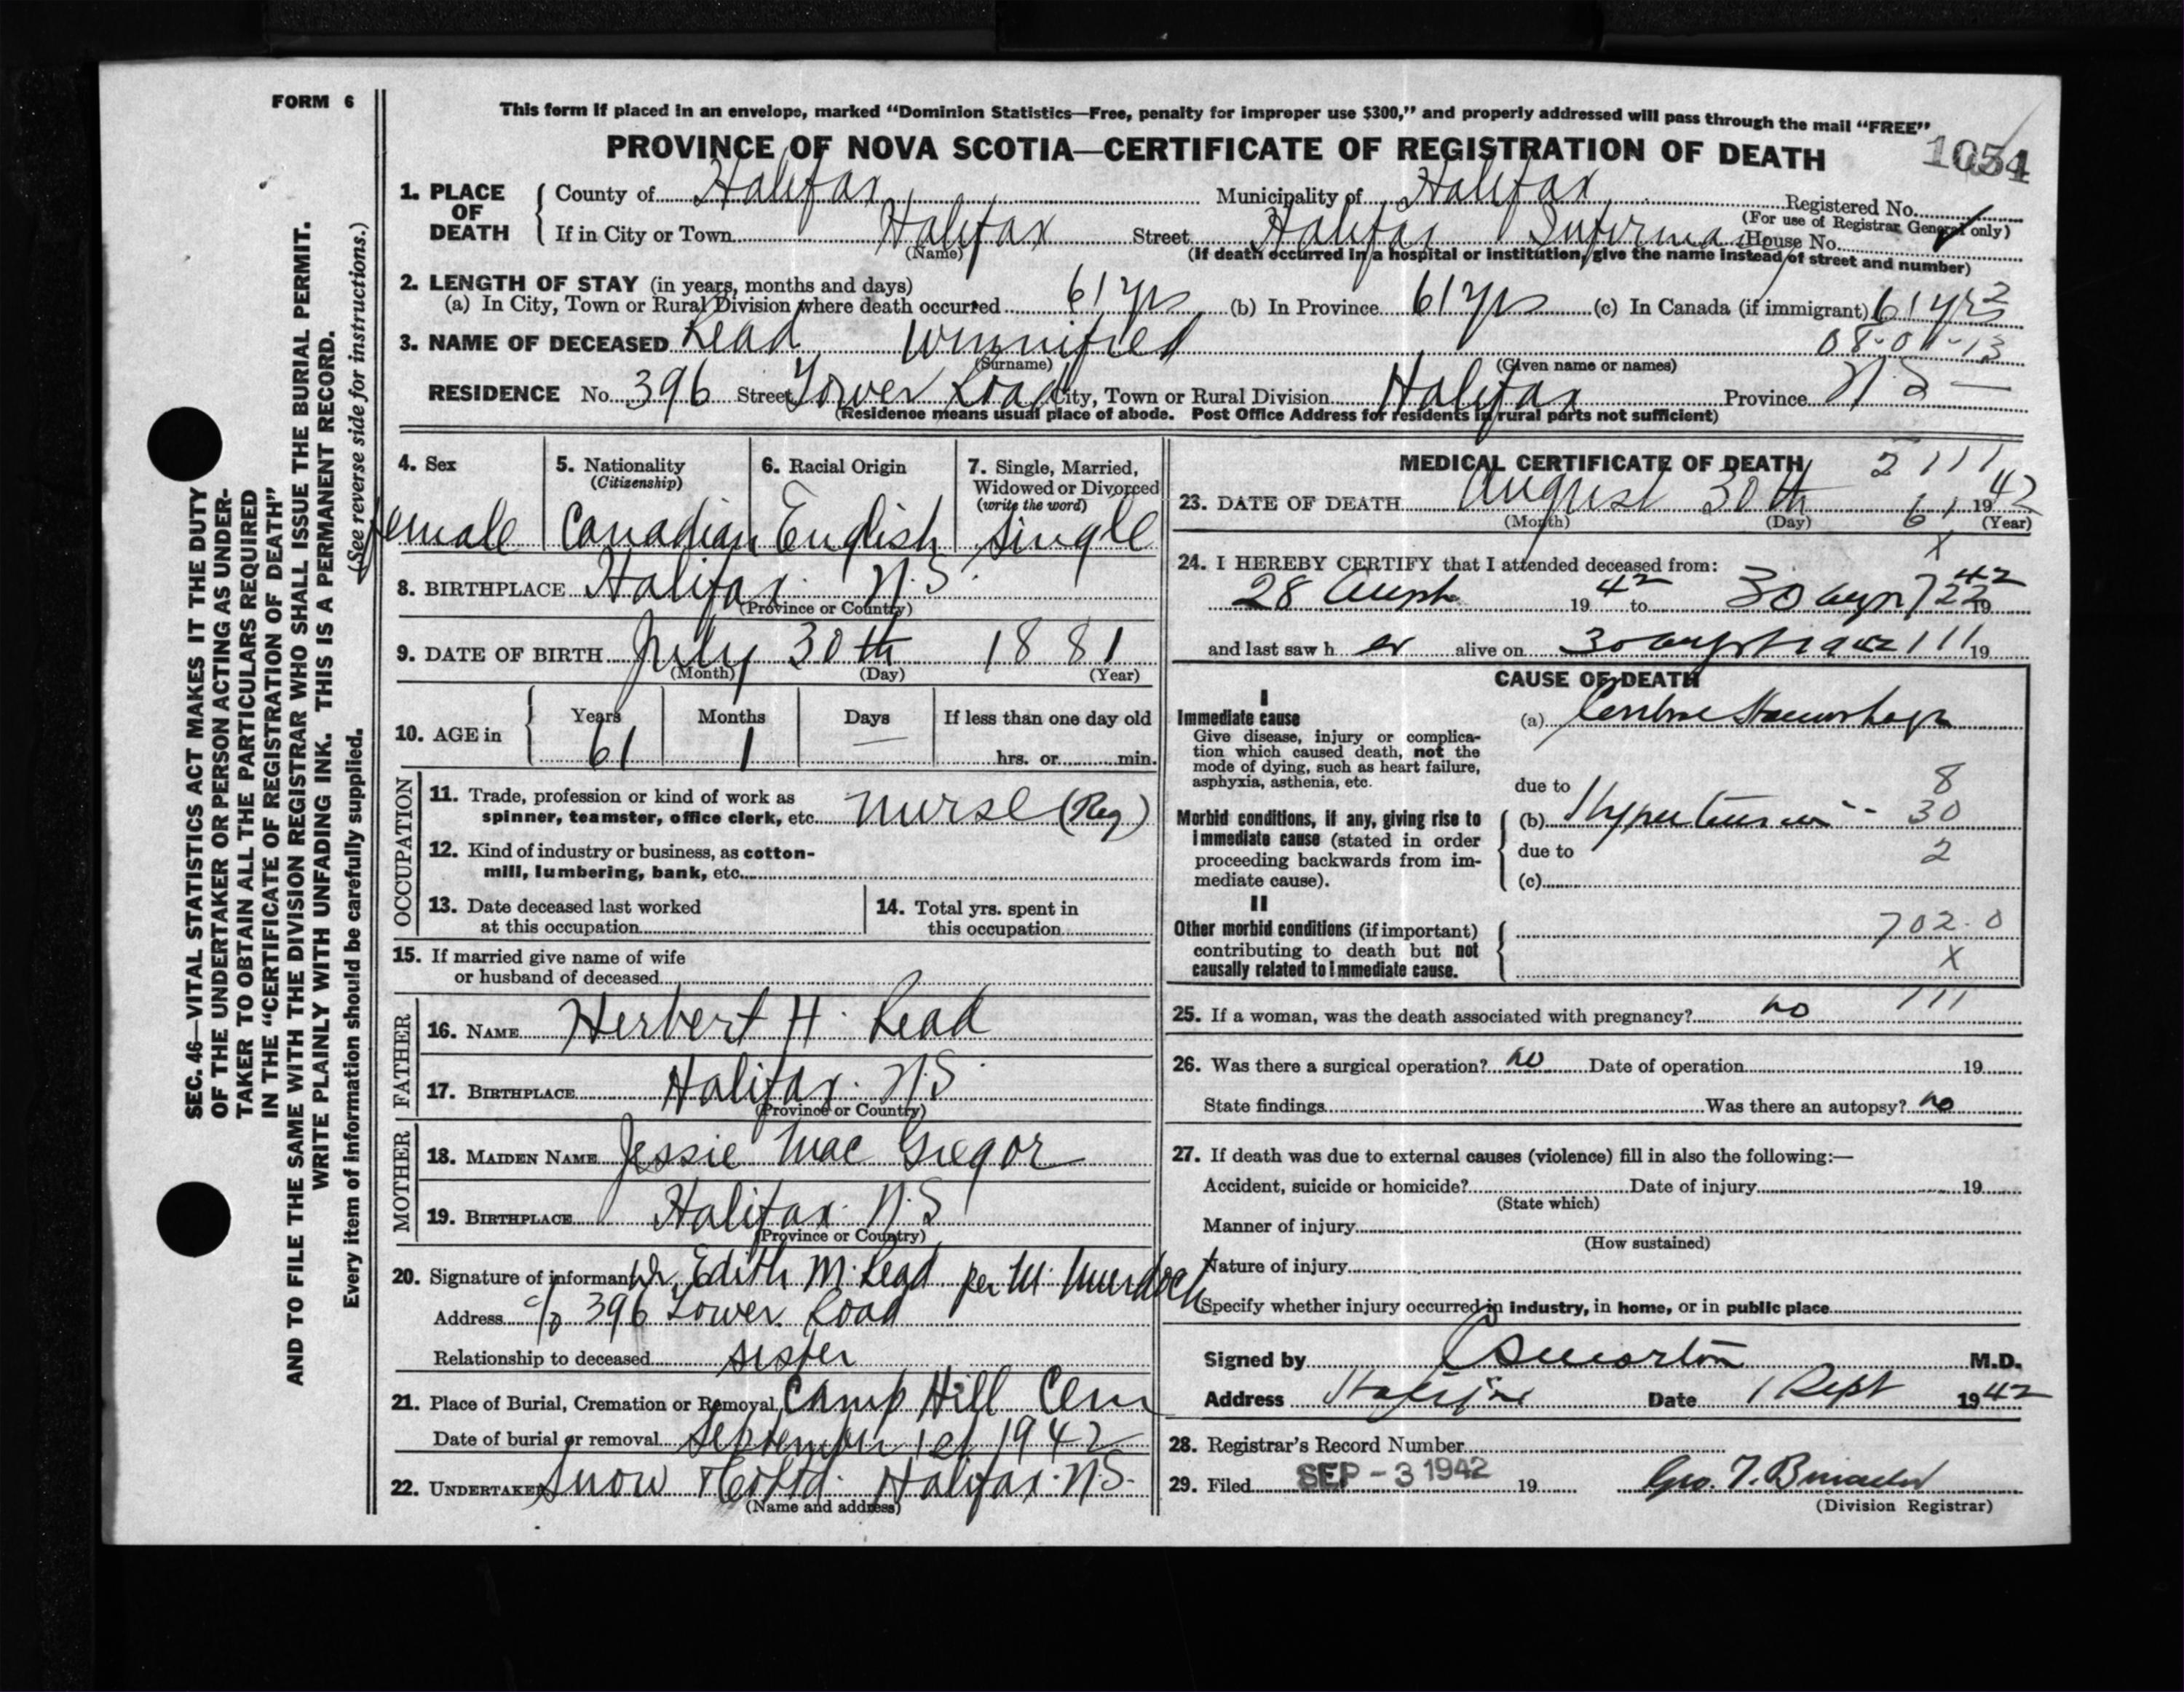 FORM 6
This form if placed in an envelope, marked “Dominion Statistics—Free, penalty for improper use $300,” and properly addressed will pass through the mail “FREE”
PROVINCE OF NOVA SCOTIA—CERTIFICATE OF REGISTRATION OF DEATH
1054
1. PLACE OF DEATH
County of Halifax Municipality of Halifax Registered No.
(For use of Registrar General only)
If in City or Town Halifax Street Halifax Infirmary House No.
(Name) (If death occurred in a hospital or institution, give the name instead of street and number)
2. LENGTH OF STAY (in years, months and days)
(a) In City, Town or Rural Division where death occurred 61 yrs (b) In Province 61 yrs (c) In Canada (if immigrant) 61 yrs 2
3. NAME OF DECEASED Read Winnifred 08-01-13
(Surname) (Given name or names)
RESIDENCE No. 396 Street Tower Road City, Town or Rural Division Halifax Province N.S —
(Residence means usual place of abode. Post Office Address for residents in rural parts not sufficient)
4. Sex
female
5. Nationality
(Citizenship)
Canadian
6. Racial Origin
English
7. Single, Married,
Widowed or Divorced
(write the word)
single
8. BIRTHPLACE Halifax. N.S.
(Province or Country)
9. DATE OF BIRTH July 30th 1881
(Month) (Day) (Year)
10. AGE in
Years Months Days If less than one day old
61 1 — hrs. or min.
OCCUPATION
11. Trade, profession or kind of work as
spinner, teamster, office clerk, etc. nurse (Reg)
12. Kind of industry or business, as cotton-
mill, lumbering, bank, etc.
13. Date deceased last worked
at this occupation
14. Total yrs. spent in
this occupation
15. If married give name of wife
or husband of deceased
FATHER
16. NAME Herbert H. Read
17. BIRTHPLACE Halifax. N.S.
(Province or Country)
MOTHER
18. MAIDEN NAME Jessie Mac Gregor
19. BIRTHPLACE Halifax. N.S
(Province or Country)
20. Signature of informant Dr. Edith M. Read per M. Murdoch
Address c/o 396 Tower Road
Relationship to deceased sister
21. Place of Burial, Cremation or Removal Camp Hill Cem
Date of burial or removal September 1st 1942
22. UNDERTAKER Snow & Co Ltd. Halifax. N.S.
(Name and address)
MEDICAL CERTIFICATE OF DEATH 2 111
23. DATE OF DEATH August 30th 1942
(Month) (Day) 61 (Year)
X
24. I HEREBY CERTIFY that I attended deceased from:
28 August 1942 to 30 August 1942 722
and last saw her alive on 30 August 1942 111 19
CAUSE OF DEATH
I
Immediate cause
Give disease, injury or complica-
tion which caused death, not the
mode of dying, such as heart failure,
asphyxia, asthenia, etc.
(a) Cerebral Haemorhage
due to 8
Morbid conditions, if any, giving rise to
immediate cause (stated in order
proceeding backwards from im-
mediate cause).
(b) Hypertension -- 30
due to 2
(c)
II
Other morbid conditions (if important)
contributing to death but not
causally related to immediate cause.
702.0
X
25. If a woman, was the death associated with pregnancy? no 111
26. Was there a surgical operation? no Date of operation 19
State findings Was there an autopsy? no
27. If death was due to external causes (violence) fill in also the following:—
Accident, suicide or homicide? Date of injury 19
(State which)
Manner of injury
(How sustained)
Nature of injury
Specify whether injury occurred in industry, in home, or in public place
Signed by Morton M.D.
Address Halifax Date 1 Sept 1942
28. Registrar's Record Number
29. Filed SEP - 3 1942 19 Geo. T.
(Division Registrar)
SEC. 46—VITAL STATISTICS ACT MAKES IT THE DUTY
OF THE UNDERTAKER OR PERSON ACTING AS UNDER-
TAKER TO OBTAIN ALL THE PARTICULARS REQUIRED
IN THE “CERTIFICATE OF REGISTRATION OF DEATH”
AND TO FILE THE SAME WITH THE DIVISION REGISTRAR WHO SHALL ISSUE THE BURIAL PERMIT.
WRITE PLAINLY WITH UNFADING INK. THIS IS A PERMANENT RECORD.
Every item of information should be carefully supplied. (See reverse side for instructions.)